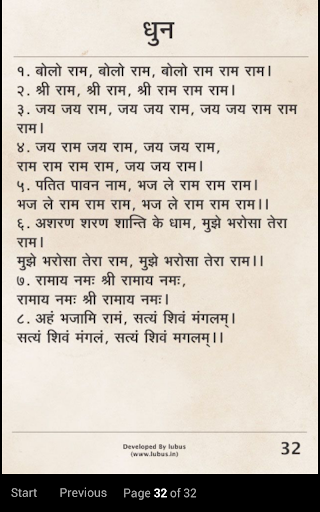 धुन
१. बोलो राम, बोलो राम, बोलो राम राम राम।
२. श्री राम, श्री राम, श्री राम राम राम।
३. जय जय राम, जय जय राम, जय जय राम राम
राम।
४. जय राम जय राम, जय जय राम,
राम राम राम राम, जय जय राम।
५. पतित पावन नाम, भज ले राम राम राम।
भज ले राम राम राम, भज ले राम राम राम।।
६. अशरण शरण शान्ति के धाम, मुझे भरोसा तेरा
राम।
मुझे भरोसा तेरा राम, मुझे भरोसा तेरा राम।।
७. रामाय नमः श्री रामाय नमः,
रामाय नमः श्री रामाय नमः।
८. अहं भजामि रामं, सत्यं शिवं मंगलम्।
सत्यं शिवं मंगलं, सत्यं शिवं मगलम्।।
Developed By lubus
(www.lubus.in)
32
Start Previous Page 32 of 32